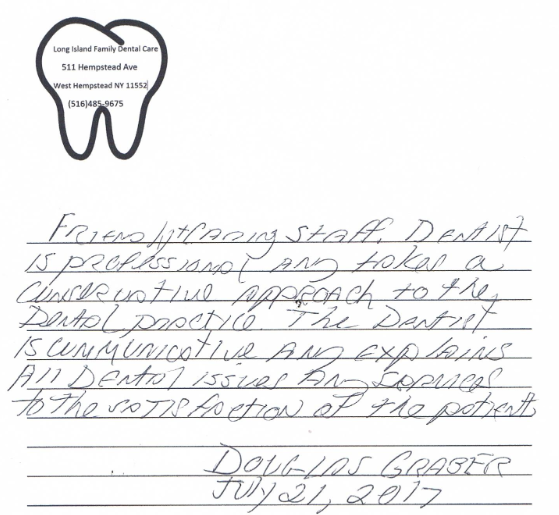 Long Island Family Dental Care
511 Hempstead Ave
West Hempstead NY 11552
(516)485-9675
Friendly + caring staff. Dentist
is professional and takes a
conservative approach to the
Dental practice. The Dentist
is communicative and explains
All Dental issues and services
to the satisfaction of the patient
DOUGLAS GRABER
JULY 21, 2017